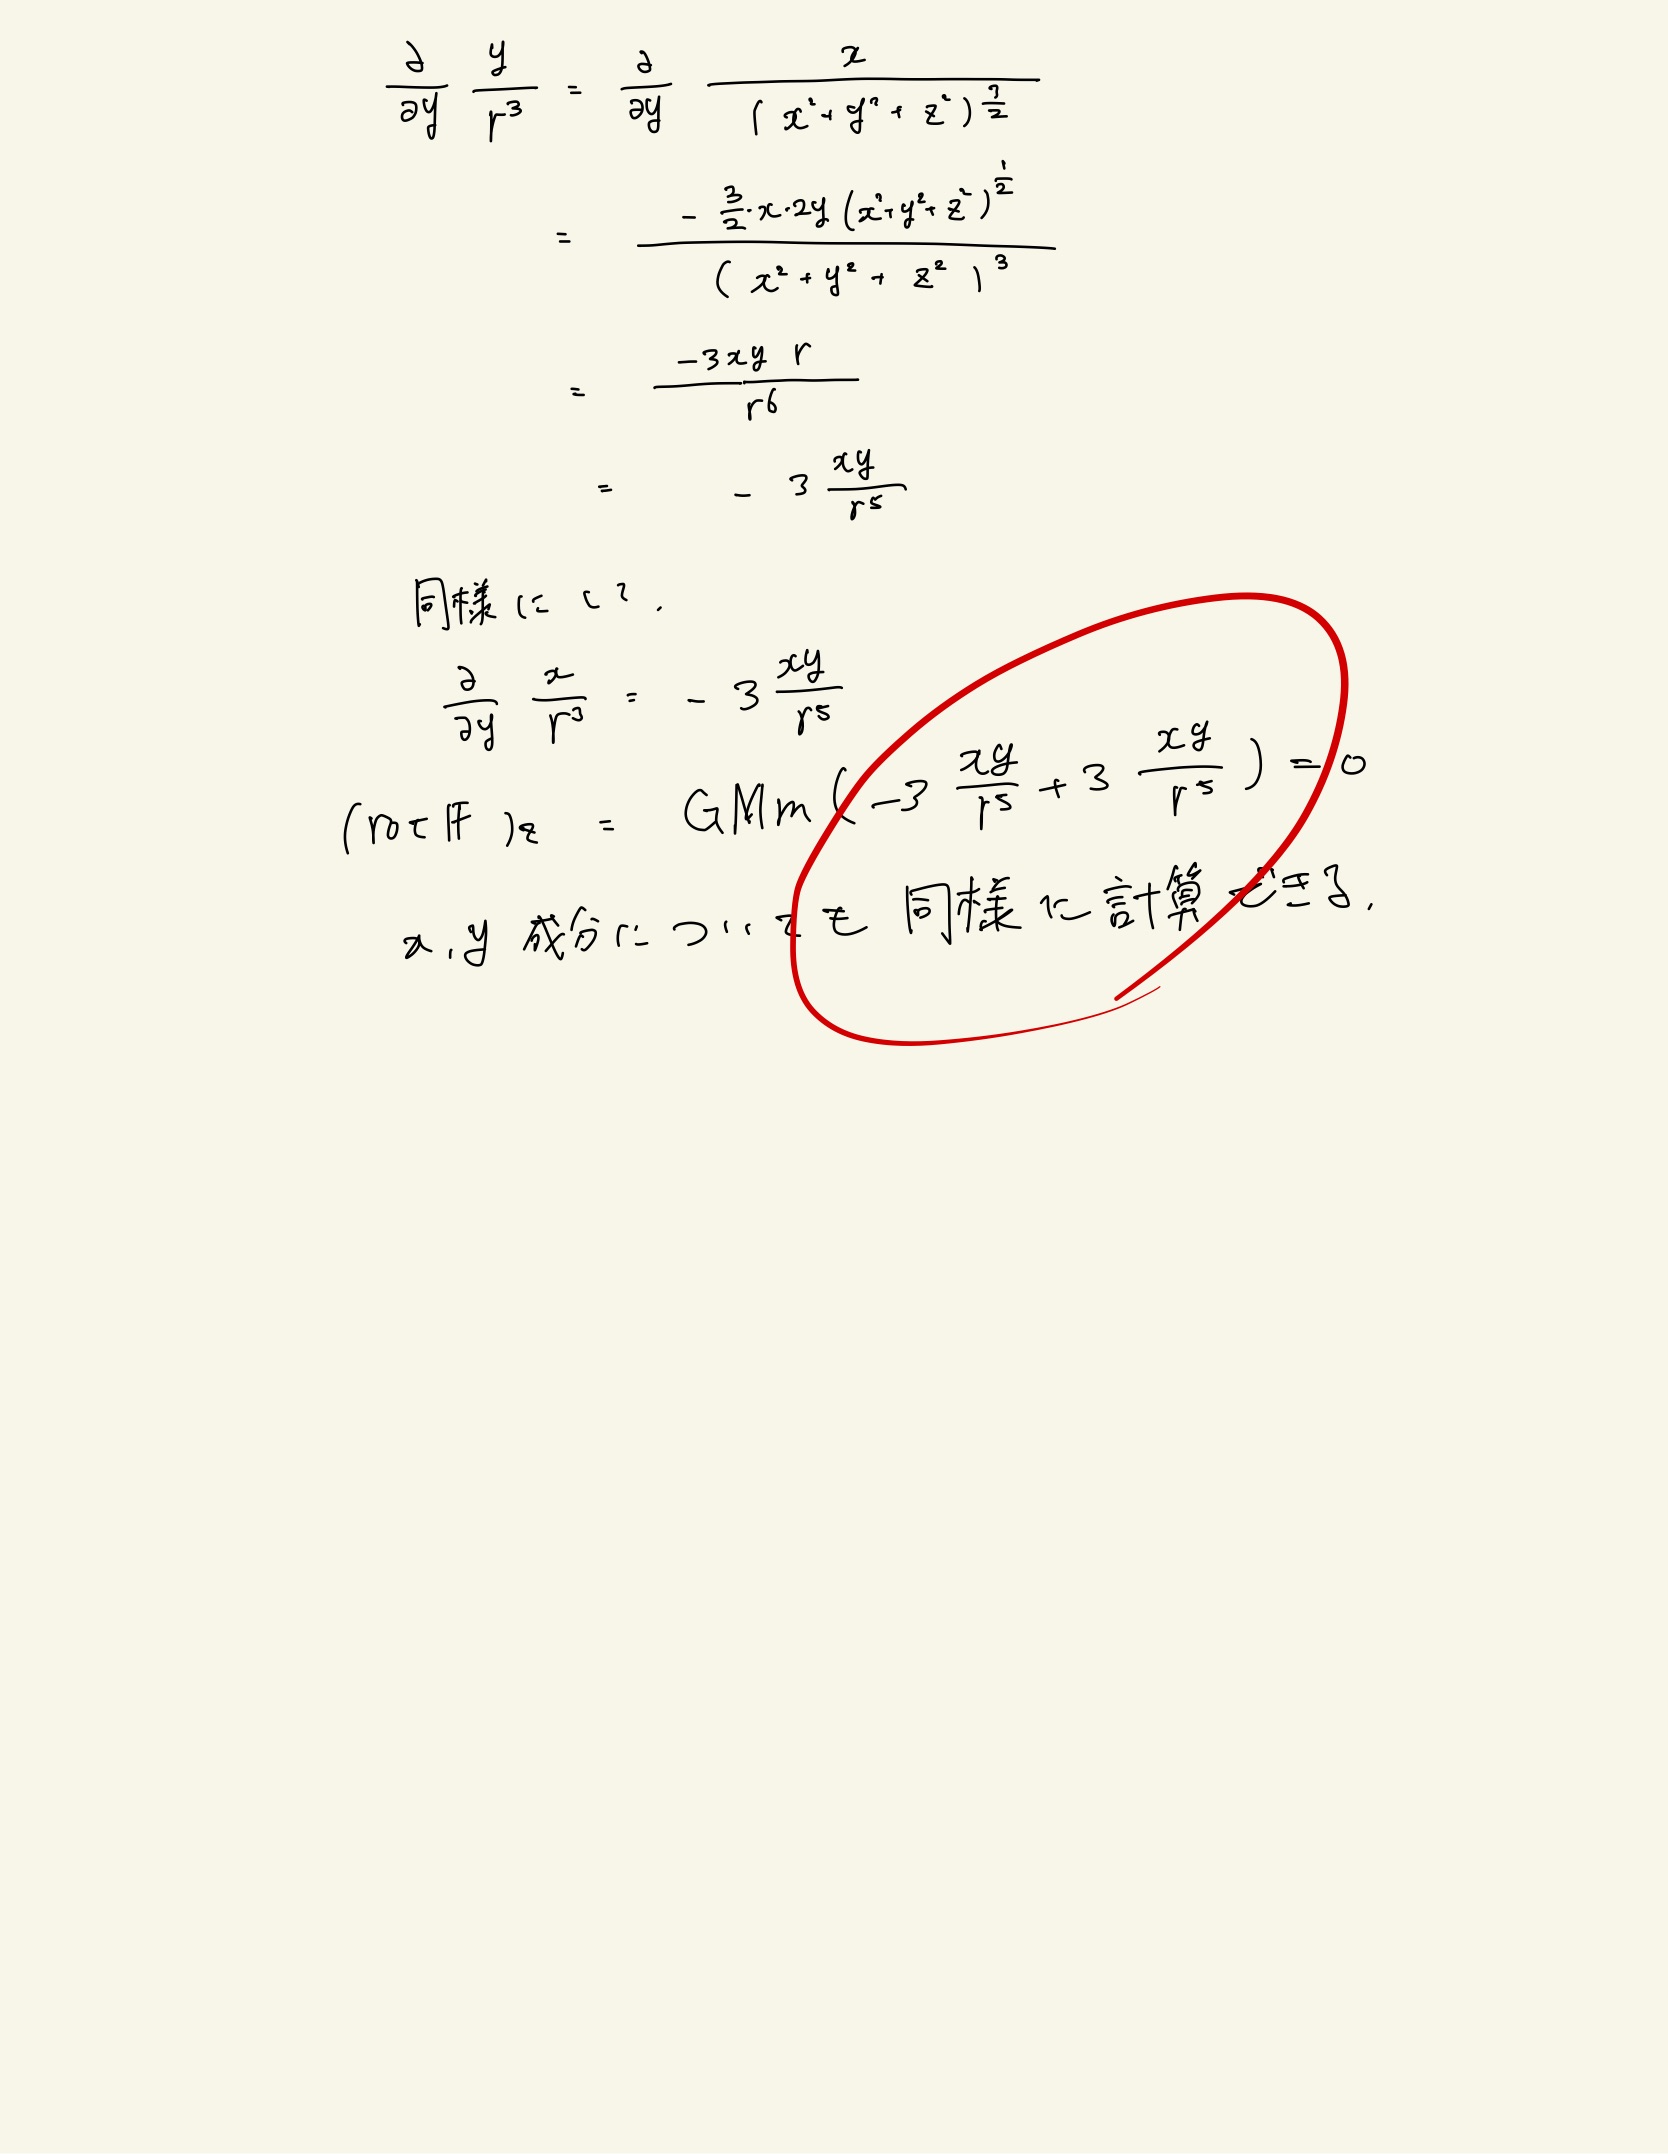 ∂/∂y y/r³ = ∂/∂y x/(x²+y²+z²)^(3/2)
= -3/2·x·2y(x²+y²+z²)^(1/2) / (x²+y²+z²)³
= -3xy r / r⁶
= - 3 xy/r⁵
同様にして.
∂/∂y x/r³ = - 3 xy/r⁵
(rot F)z = GMm(-3 xy/r⁵ + 3 xy/r⁵) = 0
x,y 成分についても同様に計算できる.